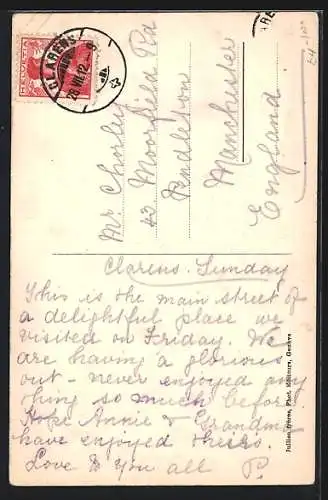 HELVETIA
CLARENS
28.VII.12.-8
Mr Chorley
42 Moorfield Rd
Pendleton
Manchester
England
Clarens. Sunday
This is the main street of
a delightful place we
visited on Friday. We
are having a glorious
out - never enjoyed any
thing so much before.
Hope Annie & Grandma
have enjoyed theirs.
Love to you all P.
Jullien frères, Phot. Editeurs, Genève